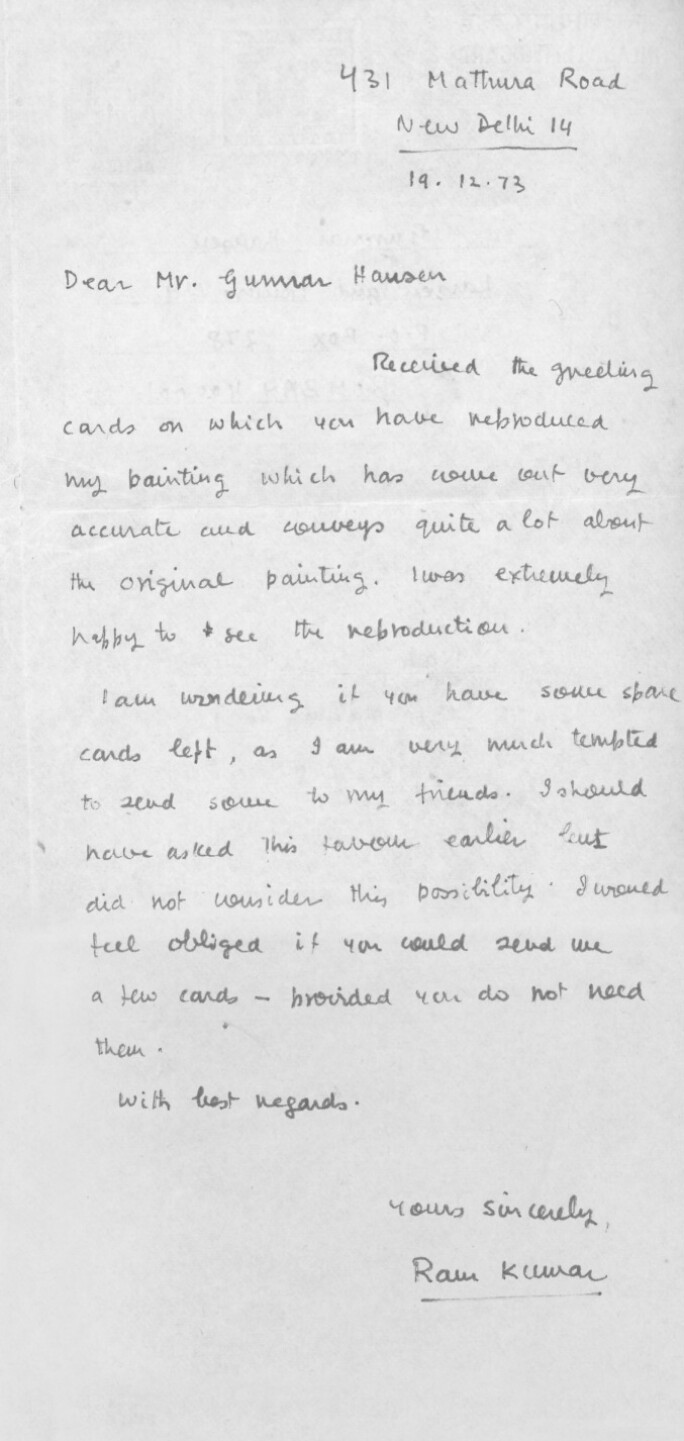 431 Mathura Road
New Delhi 14
19.12.73
Dear Mr. Gunnar Hansen
Received the greeting
cards on which you have reproduced
my painting which has come out very
accurate and conveys quite a lot about
the original painting. I was extremely
happy to see the reproduction.
I am wondering if you have some spare
cards left, as I am very much tempted
to send some to my friends. I should
have asked this favour earlier but
did not consider this possibility. I would
feel obliged if you could send me
a few cards – provided you do not need
them.
With best regards.
Yours sincerely,
Ram Kumar